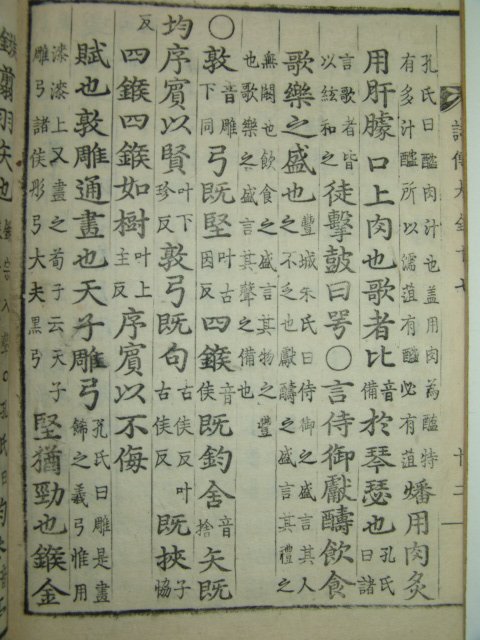 詩傳大全十七 十二
孔氏曰醓肉汁也盖用肉為醢特
有多汁醢所以濡菹有醢必有菹
燔用肉炙
用肝臄口上肉也歌者比音備於琴瑟也孔氏曰諸
言歌者皆
以絃和之
徒擊鼓曰咢○言侍御獻醻飲食
歌樂之盛也
豐城朱氏曰侍御之盛言其人
之不乏也獻醻之盛言其禮之
無闕也飲食之盛言其物之豐
也歌樂之盛言其聲之備也
○敦音雕下同弓既堅叶古因反四鍭音侯既鈞舍音捨矢既
均序賓以賢叶下珍反敦弓既句古侯反叶古侯反既挾子恊
反四鍭四鍭如樹叶上主反序賓以不侮
賦也敦雕通畫也天子雕弓
孔氏曰雕是畫
飾之義弓惟用
漆漆上又畫之荀子云天子
雕弓諸侯彤弓大夫黑弓
堅猶勁也鍭金
鏃翦羽矢也